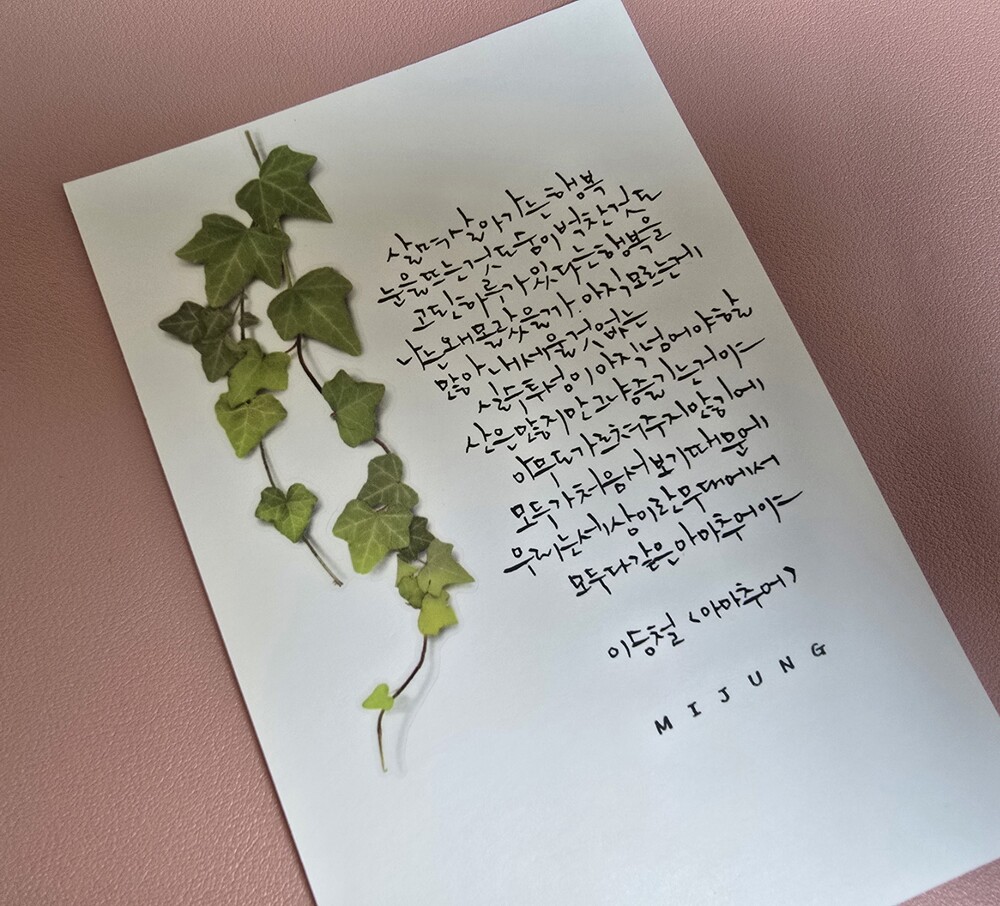 살며 살아가는 행복
눈을 뜨는 것도 숨이 벅찬 것도
고된 하루가 있다는 행복을
나는 왜 몰랐을까. 아직 모르는게
많아 내세울 것 없는
실수투성이 아직 넘어야 할
산은 많지만 그냥 즐기는거야
아무도 가르쳐 주지 않기에
모두가 처음 서보기 때문에
우리는 세상이란 무대에서
모두 다 같은 아마추어야
이승철 <아마추어>
MIJUNG